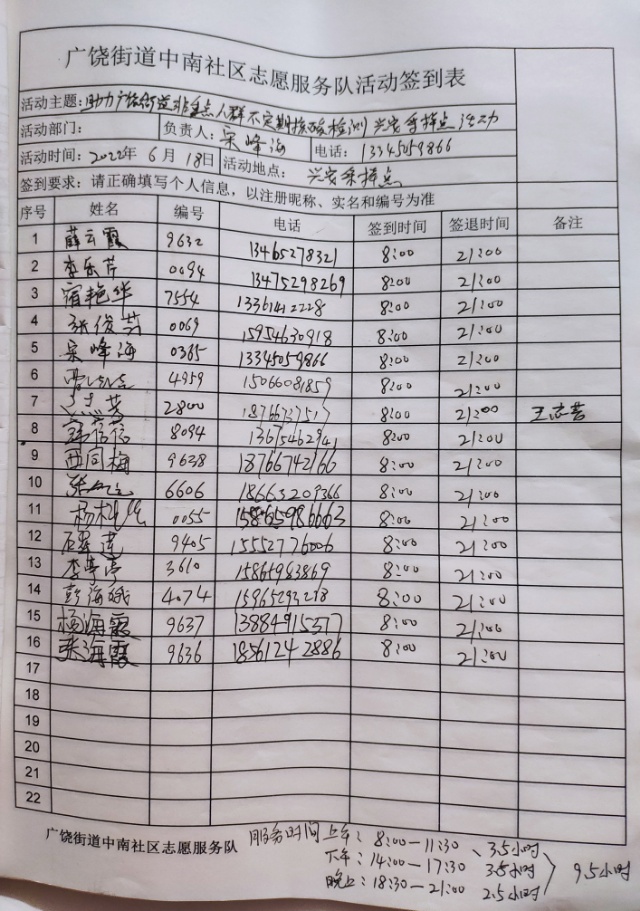 广饶街道中南社区志愿服务队活动签到表
活动主题：助力广饶街道非重点人群不定期核酸检测兴安采样点活动
活动部门： 负责人：宋峰海 电话：13345059866
活动时间：2022年6月18日 活动地点：兴安采样点
签到要求：请正确填写个人信息，以注册昵称、实名和编号为准
序号 姓名 编号 电话 签到时间 签退时间 备注
1 薛云霞 9632 13465278321 8:00 21:00
2 李乐芹 0094 13475298269 8:00 21:00
3 宿艳华 7554 13361412228 8:00 21:00
4 张俊芳 0069 15954630918 8:00 21:00
5 宋峰海 0365 13345059866 8:00 21:00
6 4959 15066081859 8:00 21:00
7 2800 8:00 21:00 王志芸
8 8094 8:00 21:00
9 西同梅 9638 18766742166 8:00 21:00
10 张 6606 18663209366 8:00 21:00
11 杨 0055 15865986663 8:00 21:00
12 莲 9405 15552776006 8:00 21:00
13 李亭亭 3610 8:00 21:00
14 彭海娥 4074 15965293218 8:00 21:00
15 杨海霞 9637 13884915377 8:00 21:00
16 张海霞 9636 18561242886 8:00 21:00
17
18
19
20
21
22
广饶街道中南社区志愿服务队 服务时间 上午：8:00—11:30 3.5小时
下午：14:00—17:30 3.5小时 9.5小时
晚上：18:30—21:00 2.5小时